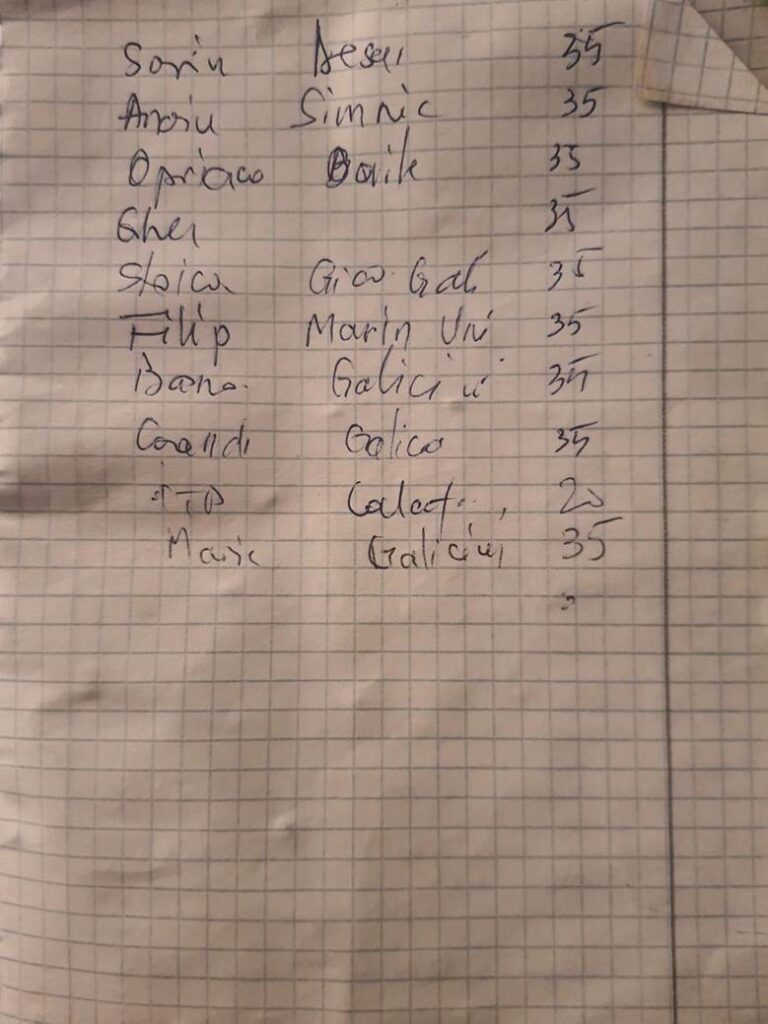 Sorin Desai 35
Anoiu Simnic 35
Opriaco Baile 35
Gher 35
Stoica Gico Gal 35
Filip Marin Uni 35
Bana Galiciui 35
Corandi Galica 35
ITP Calaf 20
Maric Galiciui 35